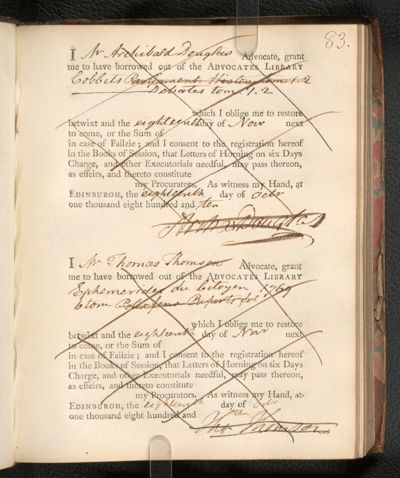 83.
I Mr Archibald Douglas Advocate, grant
me to have borrowed out of the ADVOCATES LIBRARY
Cobbets Parliament. tom 1. 2
Debates tom 1. 2
which I oblige me to restore
betwixt and the eighteenth day of Novr next
to come, or the Sum of
in case of Failzie; and I consent to the registration hereof
in the Books of Session, that Letters of Horning on six Days
Charge, and other Executorials needful, may pass thereon,
as effeirs, and thereto constitute
my Procurators. As witness my Hand, at
EDINBURGH, the eighteenth day of Octr
one thousand eight hundred and ten
Archd Douglas
I Mr Thomas Thomson Advocate, grant
me to have borrowed out of the ADVOCATES LIBRARY
Ephemerides du Citoyen 1769
6 tom
which I oblige me to restore
betwixt and the eighteenth day of Novr next
to come, or the Sum of
in case of Failzie; and I consent to the registration hereof
in the Books of Session, that Letters of Horning on six Days
Charge, and other Executorials needful, may pass thereon,
as effeirs, and thereto constitute
my Procurators. As witness my Hand, at
EDINBURGH, the eighteenth day of Octr
one thousand eight hundred and ten
Tho Thomson